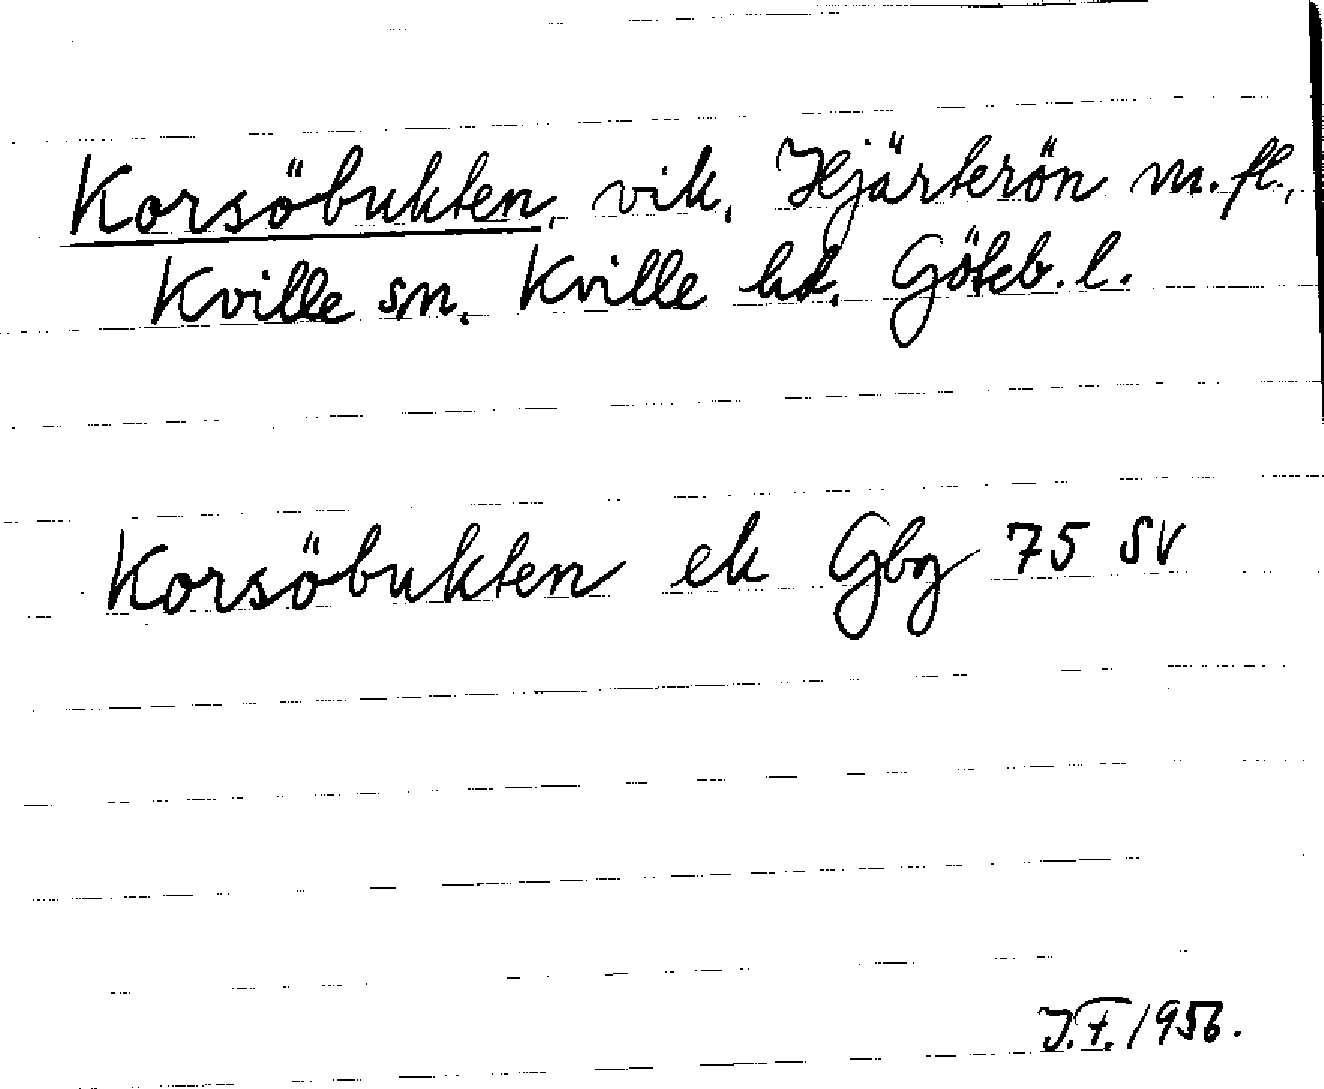 Korsöbukten, vik, Hjärterön m.fl.,
Kville sn. Kville hd. Göteb. l.
Korsöbukten ek Gbg 75 SV
J.F. 1956.